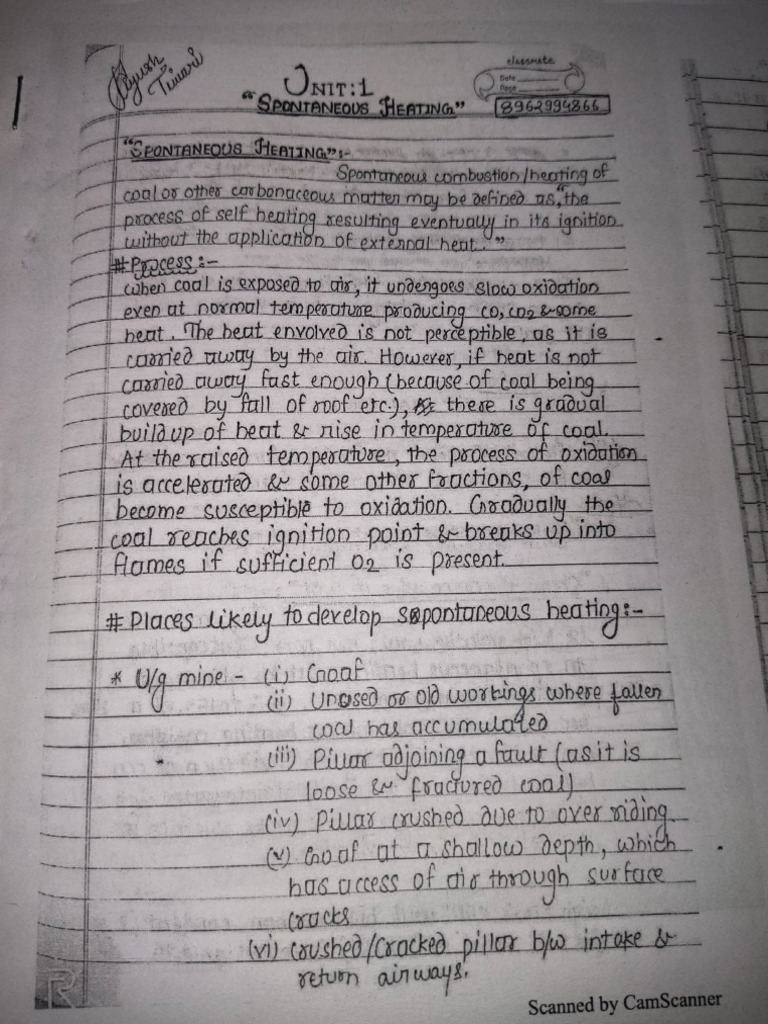 Ayush
Tiwari
classmate
Date
Page
UNIT:1
"SPONTANEOUS HEATING"
8962994866
"SPONTANEOUS HEATING":-
Spontaneous combustion/heating of
coal or other carbonaceous matter may be defined as,"the
process of self heating resulting eventually in its ignition
without the application of external heat."
#Process:-
When coal is exposed to air, it undergoes slow oxidation
even at normal temperature producing co, co2 & some
heat. The heat envolved is not perceptible, as it is
carried away by the air. However, if heat is not
carried away fast enough (because of coal being
covered by fall of roof etc.), there is gradual
build up of heat & rise in temperature of coal.
At the raised temperature, the process of oxidation
is accelerated & some other fractions, of coal
become susceptible to oxidation. Gradually the
coal reaches ignition point & breaks up into
flames if sufficient O2 is present.
# Places likely to develop spontaneous heating:-
* U/g mine:- (i) Goaf
(ii) Unused or old workings where fallen
coal has accumulated
(iii) Pillar adjoining a fault (as it is
loose & fractured coal)
(iv) Pillar crushed due to over riding
(v) Goaf at a shallow depth, which
has access of air through surface
cracks
(vi) Crushed/Cracked pillar b/w intake &
return airways.
R
Scanned by CamScanner